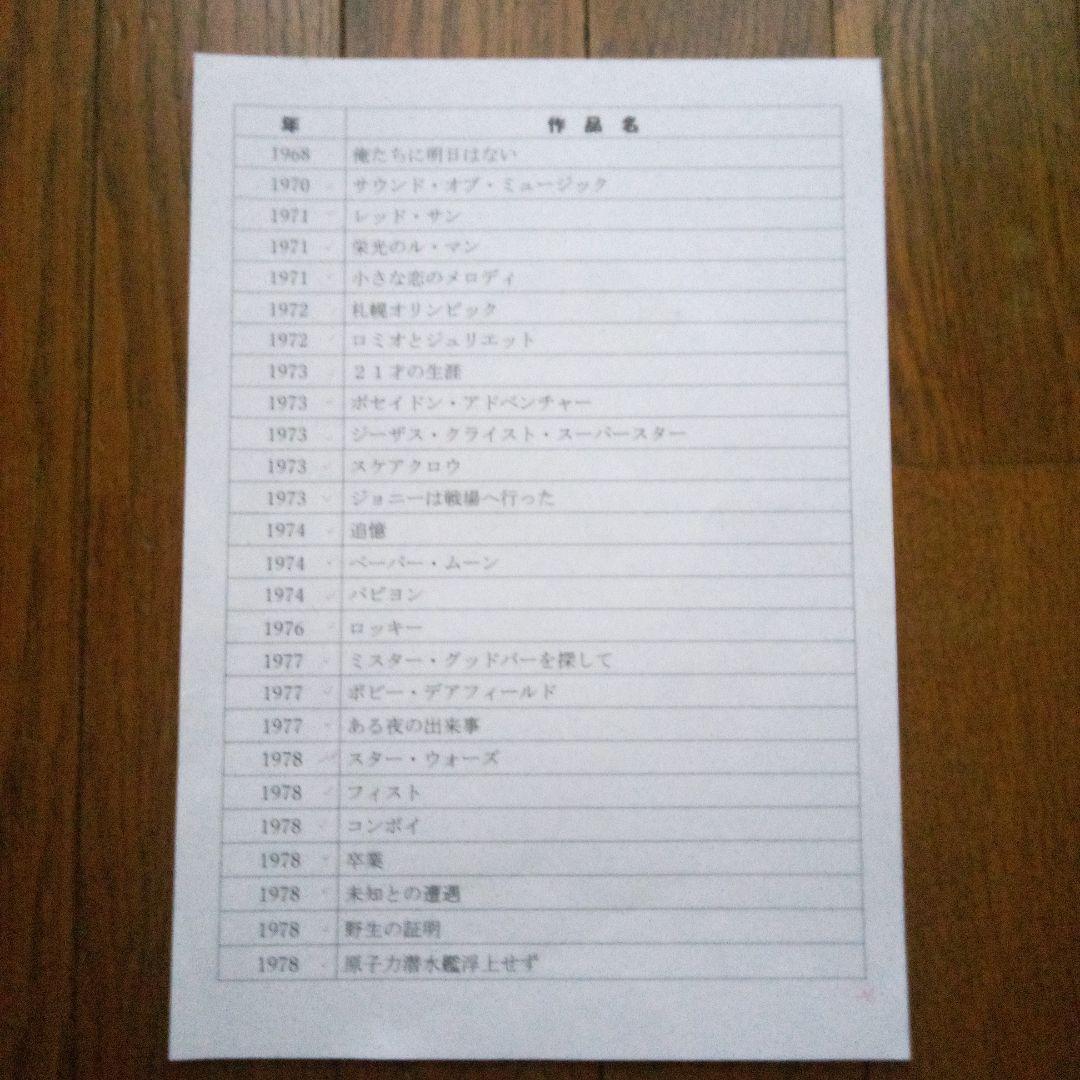 年 作品名
1968 俺たちに明日はない
1970 サウンド・オブ・ミュージック
1971 レッド・サン
1971 栄光のル・マン
1971 小さな恋のメロディ
1972 札幌オリンピック
1972 ロミオとジュリエット
1973 ２１才の生涯
1973 ポセイドン・アドベンチャー
1973 ジーザス・クライスト・スーパースター
1973 スケアクロウ
1973 ジョニーは戦場へ行った
1974 追憶
1974 ペーパー・ムーン
1974 パピヨン
1976 ロッキー
1977 ミスター・グッドバーを探して
1977 ボビー・デアフィールド
1977 ある夜の出来事
1978 スター・ウォーズ
1978 フィスト
1978 コンボイ
1978 卒業
1978 未知との遭遇
1978 野生の証明
1978 原子力潜水艦浮上せず